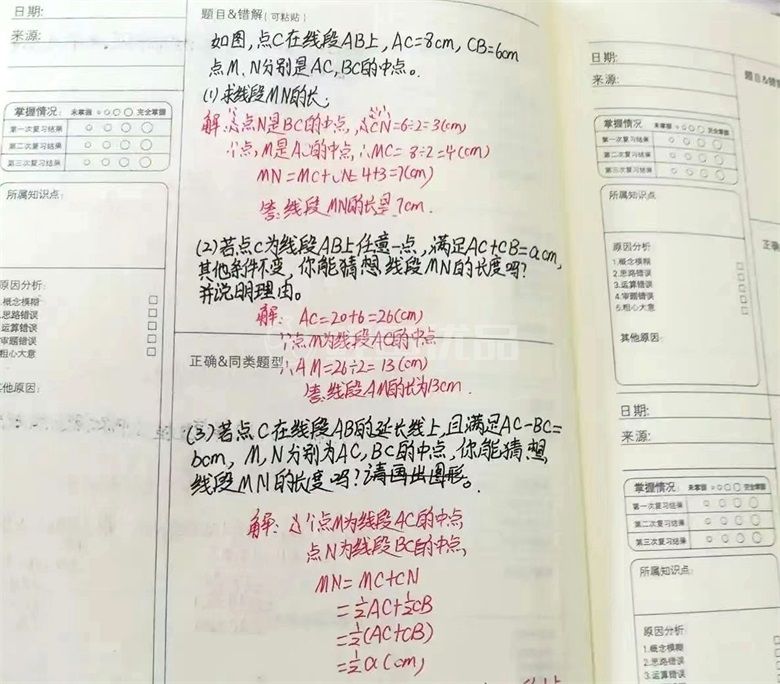 日期:
来源:
掌握情况: 未掌握 ○○○○ 完全掌握
第一次复习结果 ○ ○ ○ ○
第二次复习结果 ○ ○ ○ ○
第三次复习结果 ○ ○ ○ ○
所属知识点:
原因分析:
1.概念模糊 □
2.思路错误 □
3.运算错误 □
4.审题错误 □
5.粗心大意 □
其他原因:
题目&错解(可粘贴)
如图,点C在线段AB上,AC=8cm,CB=6cm
点M、N分别是AC,BC的中点。
(1)求线段MN的长;
解:∵点N是BC的中点,∴CN=6÷2=3(cm)
∵点,M是AC的中点,∴MC=8÷2=4(cm)
MN=MC+CN=4+3=7(cm)
答:线段MN的长是7cm.
(2)若点C为线段AB上任意一点,满足AC+CB=acm,
其他条件不变,你能猜想线段MN的长度吗?
并说明理由。
解: AC=20+6=26(cm)
∵点M为线段AC的中点
正确&同类题型
∴AM=26÷2=13(cm)
答:线段AM的长为13cm.
(3)若点C在线段AB的延长线上,且满足AC-BC=
bcm,M,N分别为AC,BC的中点,你能猜想
线段MN的长度吗?请画出图形。
解: 点M为线段AC的中点
点N为线段BC的中点,
MN=MC+CN
=½AC+½CB
=½(AC+CB)
=½a(cm)
日期:
来源:
掌握情况: 未掌握 ○○○○ 完全掌握
第一次复习结果 ○ ○ ○ ○
第二次复习结果 ○ ○ ○ ○
第三次复习结果 ○ ○ ○ ○
所属知识点:
原因分析
1.概念模糊 □
2.思路错误 □
3.运算错误 □
4.审题错误 □
5.粗心大意 □
其他原因:
题目&错解
正确
日期:
来源:
掌握情况: 未掌握 ○○○○ 完全掌握
第一次复习结果 ○ ○ ○ ○
第二次复习结果 ○ ○ ○ ○
第三次复习结果 ○ ○ ○ ○
所属知识点:
原因分析
1.概念模糊
2.思路错误
3.运算错误